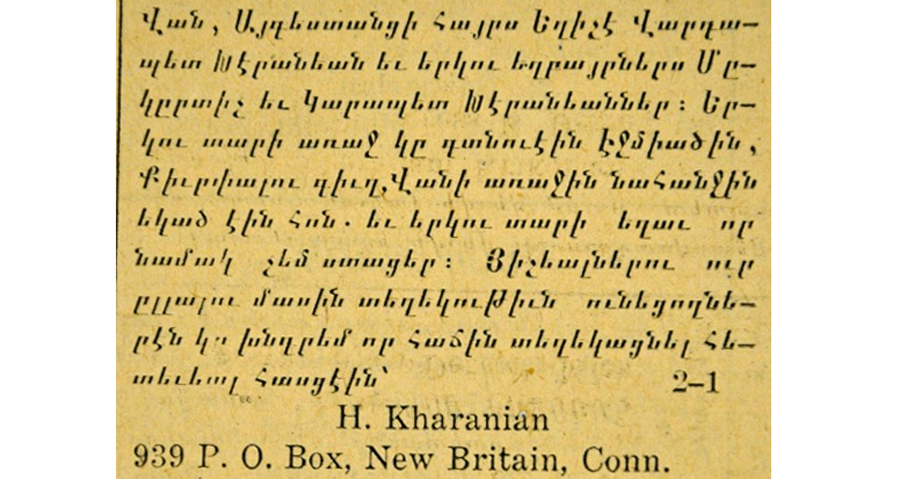 Վան, Այգեստանցի Հայրս Եղիշէ Վարդա—
պետ Խէրանեան եւ երկու եղբայրներս Մը—
կըրտիչ եւ Կարապետ Խէրանեաններ։ Եր—
կու տարի առաջ կը գտնուէին Էջմիածին,
Քիւրփալու գիւղ, Վանի առաջին նահանջին
եկած էին հոն. եւ երկու տարի եղաւ որ
նամակ չեմ ստացեր։ Յիշեալներու ուր
ըլլալու մասին տեղեկութիւն ունեցողնե—
րէն կը խնդրեմ որ հաճին տեղեկացնել հե—
տեւեալ հասցէին՝ 2–1
H. Kharanian
939 P. O. Box, New Britain, Conn.